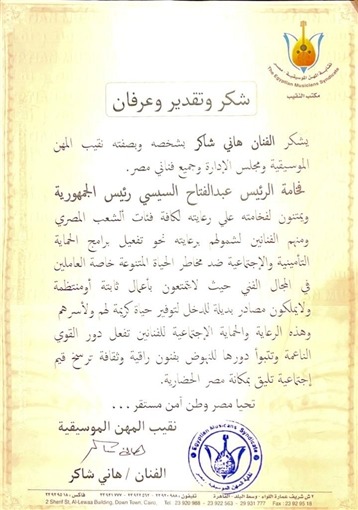 نقابة المهن الموسيقية - مصر
The Egyptian Musicians Syndicate
مكتب النقيب
شكر وتقدير وعرفان
يشكر الفنان هاني شاكر بشخصه وبصفته نقيب المهن
الموسيقية ومجلس الإدارة وجميع فناني مصر.
فخامة الرئيس عبدالفتاح السيسي رئيس الجمهورية
ويمتنون لفخامته علي رعايته لكافة فئات الشعب المصري
ومنهم الفنانين لشمولهم برعايته نحو تفعيل برامج الحماية
التأمينية والإجتماعية ضد مخاطر الحياة المتنوعة خاصة العاملين
في المجال الفني حيث لايتمتعون بأعمال ثابتة أومنتظمة
ولايملكون مصادر بديلة للدخل لتوفير حياة كريمة لهم ولأسرهم
وهذه الرعاية والحماية الإجتماعية للفنانين تفعل دور القوي
الناعمة وتتبوأ دورها للنهوض بفنون راقية وثقافة ترسخ قيم
إجتماعية تليق بمكانة مصر الحضارية.
تحيا مصر وطن آمن مستقر...
نقيب المهن الموسيقية
هاني شاكر
الفنان / هاني شاكر
Egyptian Musicians Syndicate
٢ ش شريف عمارة اللواء - وسط البلد - القاهرة
2 Sherif St, Al-Lewaa Building, Down Town, Cairo,